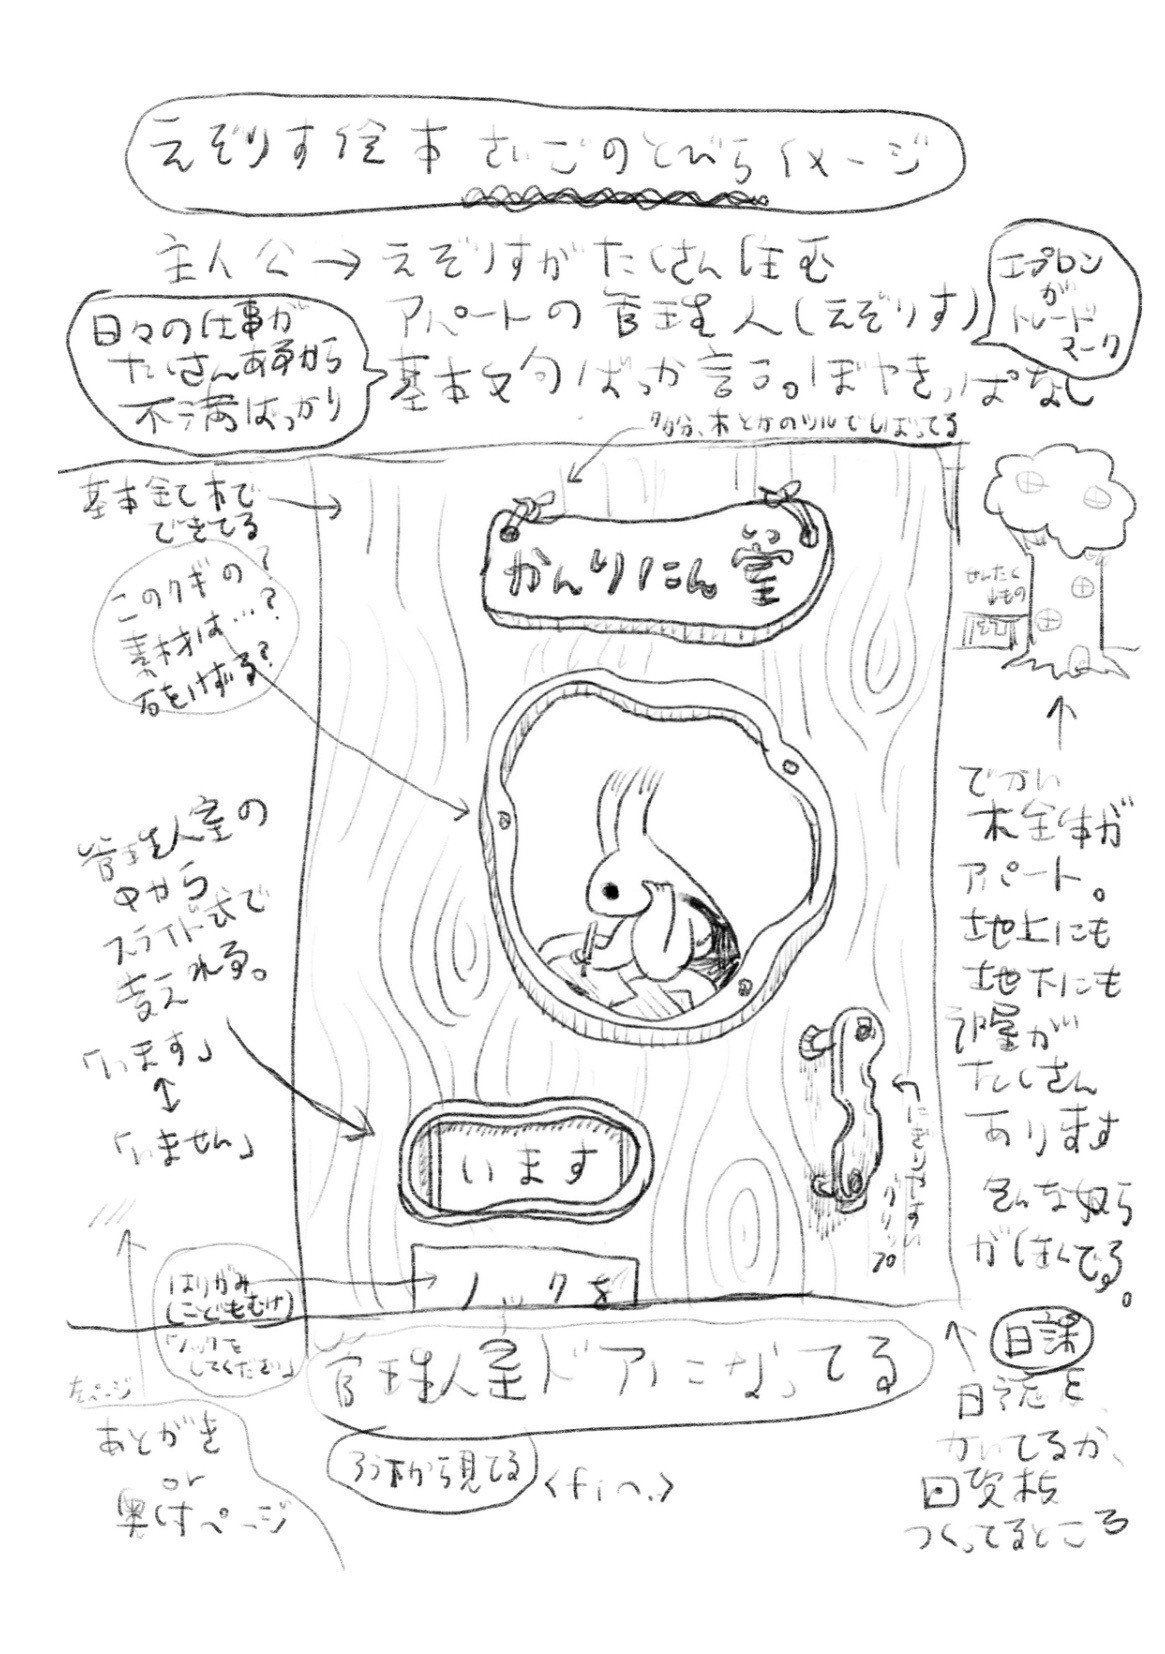 えぞりす絵本 さいごのとびらイメージ
主人公→えぞりすがたくさん住む
アパートの管理人(えぞりす)
基本文句ばっか言う。ぼやきっぱなし
エプロン
が
トレード
マーク
日々の仕事が
たくさんあるから
不満ばっかり
多分、木とかのツルでしばってる
基本全て木で
できてる
このクギの?
素材は…?
石をけずる?
かんりにん室
せんたく
もの
管理人室の
中から
スライド式で
変えれる。
「います」
↕
「いません」
います
でかい
木全体が
アパート。
地上にも
地下にも
部屋が
たくさん
あります
色んな奴ら
がすんでる。
はりがみ
(こどもむけ)
「ノックを
してください」
ノックを
管理人室ドアになってる
外から見てる
<fin.>
左ページ
あとがき
or
奥付ページ
日課
日誌を
かいてるか、
回覧板
つくってるところ